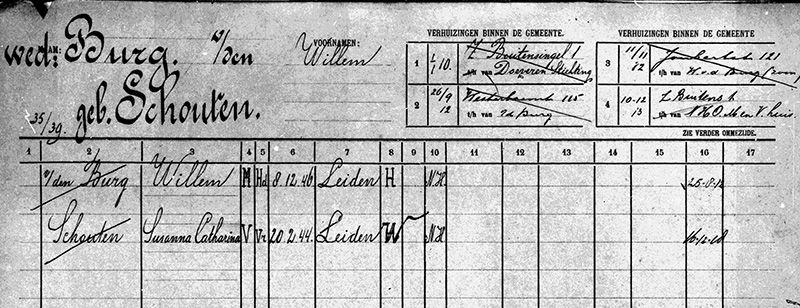 wed: AM: Burg. v/den VOORNAMEN: Willem
geb. Schouten.
35/39.
VERHUIZINGEN BINNEN DE GEMEENTE.
1 1/7 10. Z. Buitensingel 1
t/h van Doeveren Stichting
2 26/9 12 115
t/h van v/d Burg
VERHUIZINGEN BINNEN DE GEMEENTE
3 11/11 12 Joubertstr. 121
t/h van W. v. d. Burg (zoon)
4 10-12 13 Z. Buitens. 1
t/h van N.H.O. M. en V. huis.
ZIE VERDER OMMEZIJDE.
1 2 3 4 5 6 7 8 9 10 11 12 13 14 15 16 17
v/den Burg Willem M Hd 8.12.46 Leiden H N.H.
Schouten Susanna Catharina V Vr 20.2.44. Leiden W N.H.